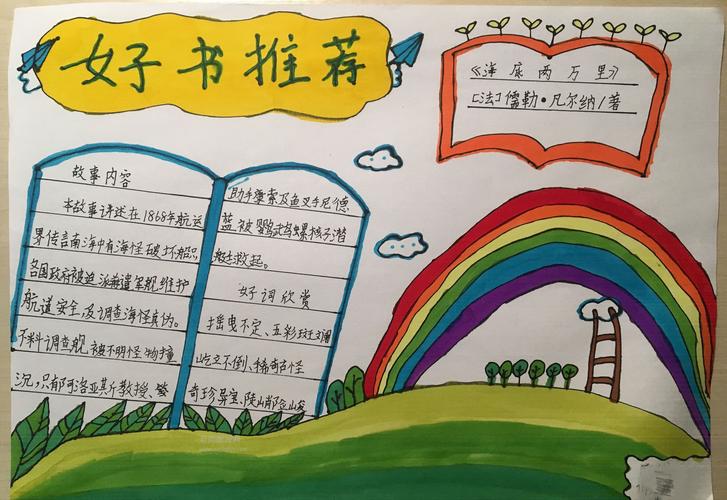 女子书推荐
《海底两万里》
[法]儒勒·凡尔纳/著
故事内容
本故事讲述在1868年航运
界传言南海中有海怪破坏船只
各国政府被迫派遣军舰维护
航道安全,及调查海怪真伪。
不料调查舰被不明怪物撞
沉,只有阿洛亚斯教授、
助手 及鱼叉手尼德
蓝被鹦鹉螺核子潜
艇救起。
好词欣赏
摇曳不定、五彩斑斓
屹立不倒、稀奇古怪
奇珍异宝、